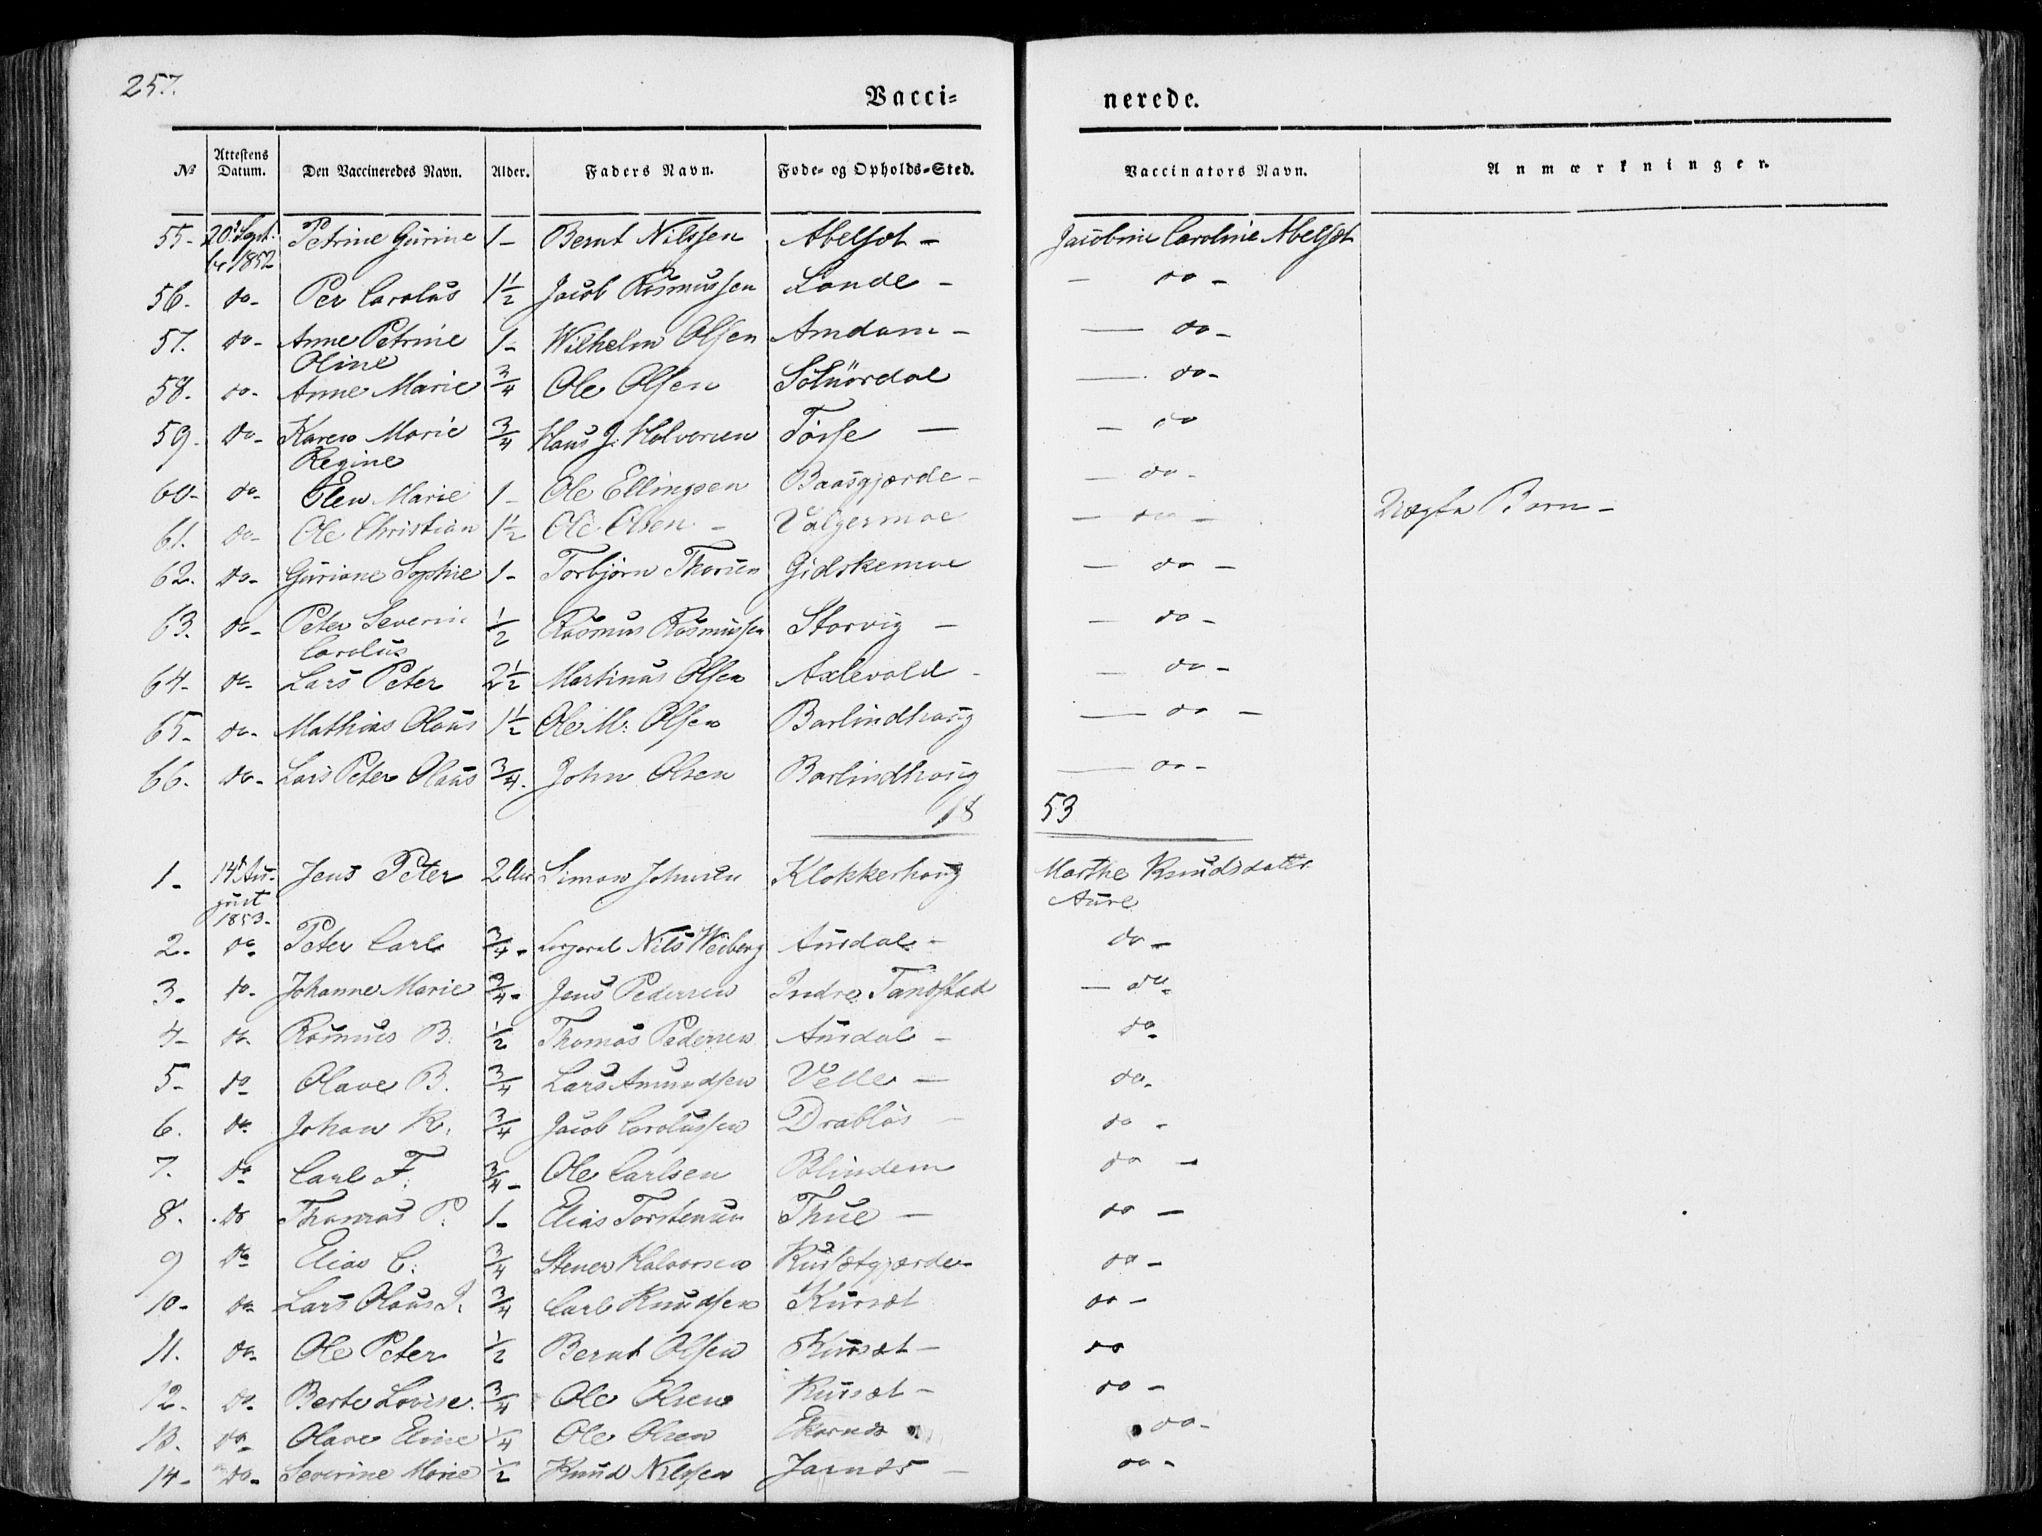 257.
Vacci= nerede.
№ Attestens Datum. Den Vaccineredes Navn. Alder. Faders Navn. Føde- og Opholds-Sted. Vaccinators Navn. Anmærkninger.
55- 20 Sept. Petrine Gurine 1- Bernt Nilssen Abelsæt - Jacobine Caroline Abelsæt
1852
56. do- Per Carolus 1½ Jacob Rasmussen Lande - - do -
57. do- Anne Petrine 1- Wilhelm Olsen Amdam - - do -
Oline
58. do- Anne Marie ¾ Ole Olsen Solnørdal - do-
59. do- Karen Marie ¾ Hans J. Halvorsen Tørse - - do
Regine
60- do- Elen Marie 1- Ole Ellingsen Baasgjærde - - do -
61. do- Ole Christian 1½ Ole Olsen - Valgermoe - do - Uægte Barn -
62. do- Guriane Sophie 1- Torbjørn Thorsen Gidskemoe - do -
63. do- Peter Severin ½ Rasmus Rasmussen Storvig - - do -
Carolus
64- do- Lars Peter 2½ Martinus Olsen Axlevold - - do -
65- do- Mathias Olaus 1½ Ole M. Olsen Barlindhaug - do -
66. do- Lars Peter Olaus ¾. John Olsen Barlindhaug - do -
18 53
1- 14 Au- Jens Peter 2 Aar Simon Johnsen Klokkerhaug Marthe Knudsdatter
gust Aure
1853-
2. do Peter Carl ¾- Corporal Nils Weiberg Aursdal - do -
3- do- Johanne Marie ¾- Jens Pedersen Indre Tandstad - do-
4- do- Rasmus B. ½ Thomas Pedersen Aursdal - do-
5- do Olave B. ¾ Lars Amundsen Velle - do-
6. do- Johan K. ¾ Jacob Carolussen Drabløs - do -
7. do Carl F. ¾- Ole Carlsen Blindem do -
8. do Thomas P. 1- Elias Torstensen Thue - do -
9 do Elias C. ¾ Stener Halvorsen Kursætgjærde- do -
10- do- Lars Olaus J. ¾ Carl Knudsen Kursæt do -
11. do- Ole Peter ½ Bernt Olsen Kursæt - do
12. do- Berte Lovise ¾ Ole Olsen Kursæt - do -
13. do- Olave Eline ¼ Ole Olsen Ekornæs do-
14- do- Severine Marie ½ Knud Nilssen Jarnæs - do -